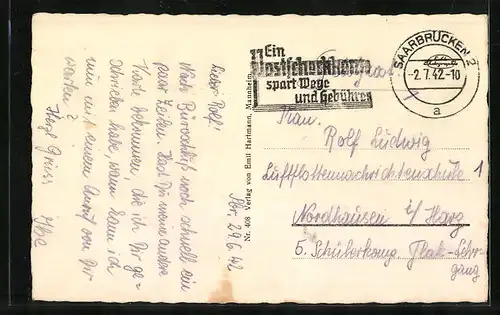 Sbr. 29.6.42
Lieber Rolf!
Nach Büroschluß noch schnell ein
paar Zeilen. Hast Du meine andere
Karte bekommen, die ich Dir ge-
schrieben habe, wann kann ich
nun mit einem Anruf von Dir
warten?
Herzl. Grüsse
Nr. 408 Verlag von Emil Hartmann, Mannheim
Ein
Postscheckkonto
spart Wege
und Gebühren
SAARBRÜCKEN 2
-2.7.42-10
a
Rolf Ludwig
Luftflottennachrichtenschule 1
Nordhausen i/Harz
5. Schülerkomp. Flak-Lehr-
gang